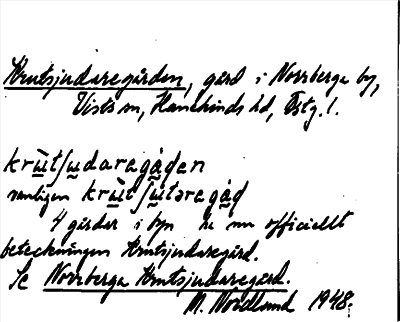 Krutsjudaregården, gård i Norrberga by,
Vists sn, Hanekinds hd, Östg. l.
krùtʃu̲daregå̲den
vanligen krùtʃu̲təregå̲d
4 gårdar i byn ha nu officiellt
beteckningen Krutsjudaregård.
Se Norrberga Krutsjudaregård.
M. Wordlund 1948.